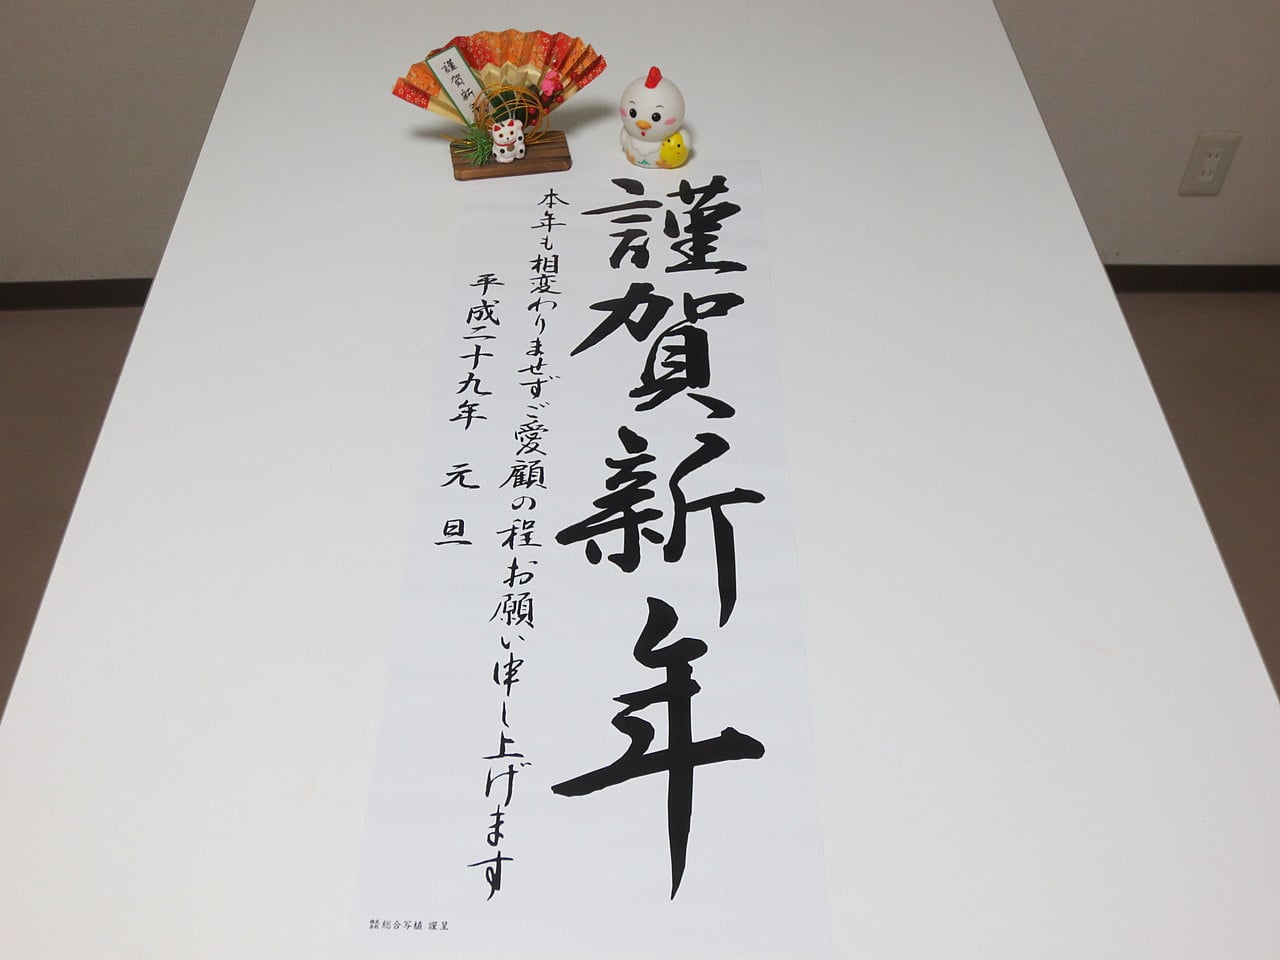 謹賀新年
謹賀新年
本年も相変わりませずご愛顧の程お願い申し上げます
平成二十九年 元旦
株式会社総合写植 謹呈